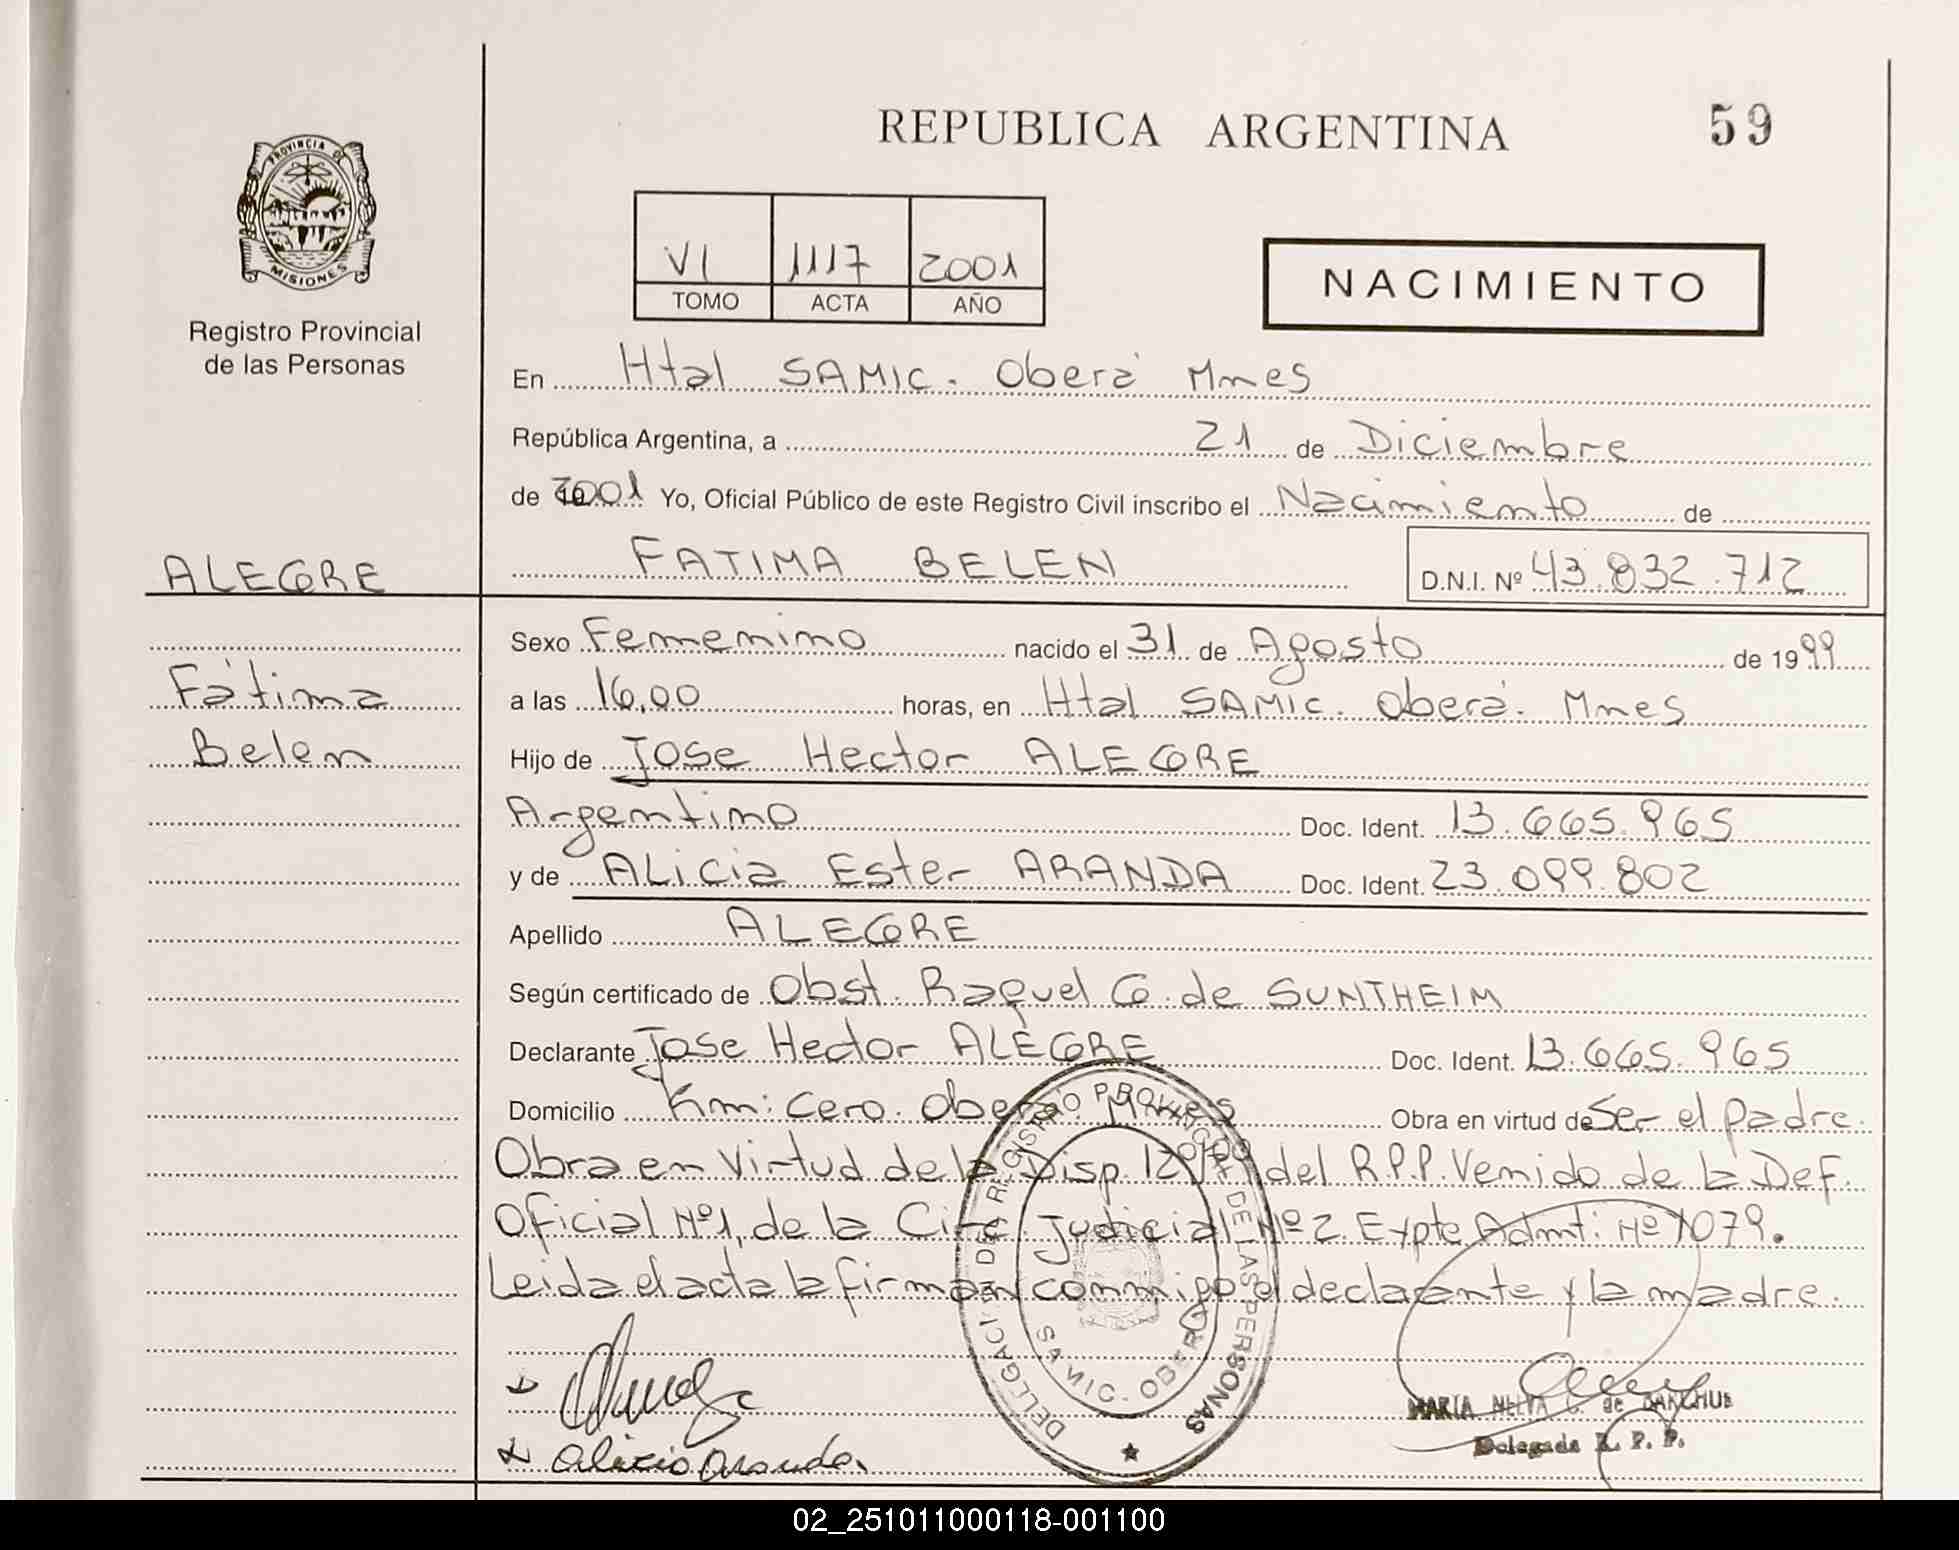 REPUBLICA ARGENTINA
59
PROVINCIA DE
MISIONES
Registro Provincial
de las Personas
VI 1117 2001
TOMO ACTA AÑO
NACIMIENTO
En Htal SAMIC. Oberá Mnes
República Argentina, a 21 de Diciembre
de 2001 Yo, Oficial Público de este Registro Civil inscribo el Nacimiento de
ALEGRE
FATIMA BELEN D.N.I. Nº 43.832.712
Sexo Femenino nacido el 31 de Agosto de 1999
Fátima
a las 16,00 horas, en Htal SAMIC. Oberá. Mnes
Belen
Hijo de Jose Hector ALEGRE
Argentino Doc. Ident. 13.665.965
y de ALicia Ester ARANDA Doc. Ident. 23.099.802
Apellido ALEGRE
Según certificado de Obst. Raquel G. de SUNTHEIM
Declarante Jose Hector ALEGRE Doc. Ident. 13.665.965
Domicilio Km: Cero. Oberá. Mnes Obra en virtud de Ser el padre.
Obra en Virtud de la Disp. 12º/99 del R.P.P. Venido de la Def.
Oficial Nº1, de la Circ. Judicial Nº2. Expte Admt: Nº 1079.
Leida el acta la firman conmigo el declarante y la madre.
DELEGACION DEL REGISTRO PROVINCIAL DE LAS PERSONAS
SAMIC. OBERA
Alicia Aranda.
MARIA NELVA C. de
Delegada R. P. P.
02_251011000118-001100